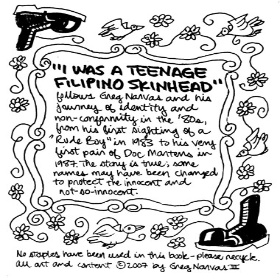 "I WAS A TEENAGE
FILIPINO SKINHEAD"
follows Greg Narvas and his
journey of identity and
non-conformity in the '80s,
from his first sighting of a
"Rude Boy" in 1983 to his very
first pair of Doc Martens in
1987. The story is true; some
names may have been changed
to protect the innocent and
not-so-innocent.
No staples have been used in this book - please recycle.
All art and content © 2007 by Greg Narvas III